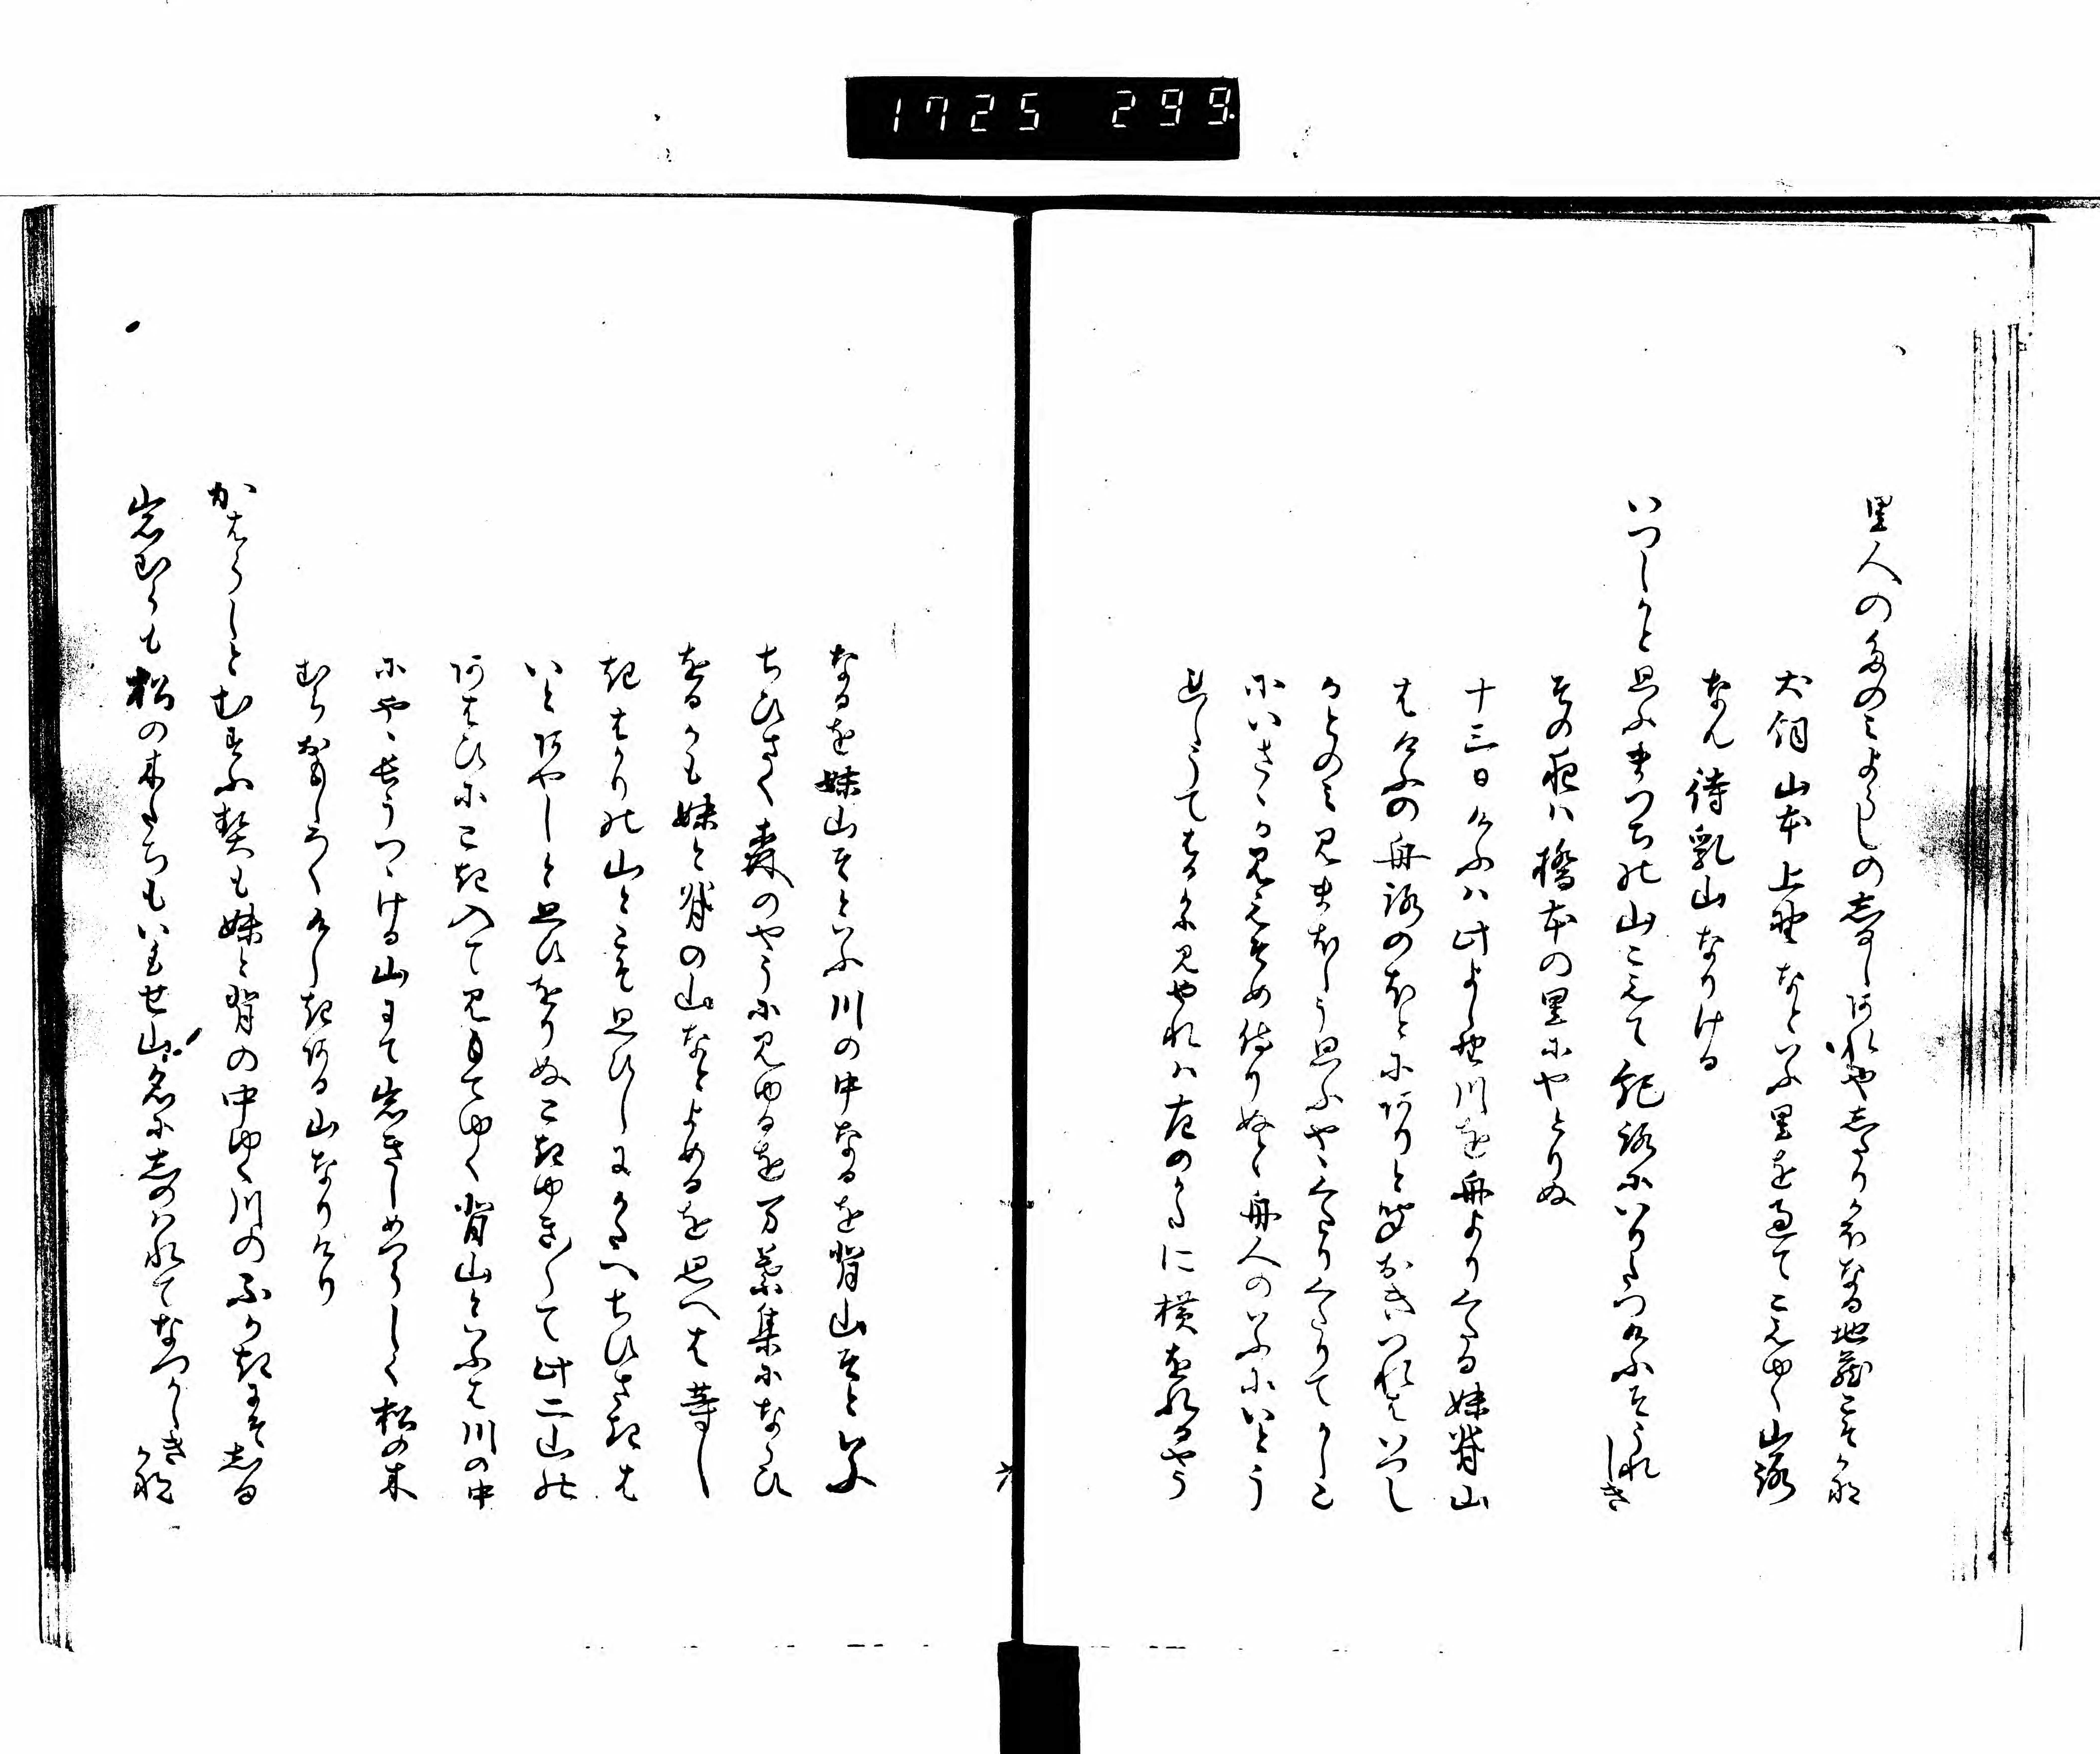 1725 299.
里人のたのミよるしの志るしあれや志たりかほなる地蔵こそかね
犬飼山本上野なといふ里を過てこえゆく山路
なん待乳山なりける
いつしかと思ふまつちの山こえて紀路にいりたつけふそうれしき
その夜は橋本の里にやとりぬ
十三日けふは此よし野川を舟よりくたる妹背山
はけふの舟路のほとにありと聞おきつれはいつし
かとのミ見まほしう思ふやゝくたりくたりてかしこ
にいさゝか見えそめ侍りぬと舟人のいふにいとう
れしうてはるかに見やれは左のかたに横をれるやう
なるを妹山そといふ川の中なるを背山そといふ
ちひさく森のやうに見ゆるを万葉集にならひ
をるかも妹と背の山なとよめるを思へは等し
きはかりの山とこそ思ひしにかたへちひさきは
いとあやしと思ひをりぬこきゆき〳〵て此二山の
あはひにこき入て見もてゆく背山といふは川の中
にやゝ長うつゝける山にて岩きしめつらしく松の木
むらおもしろくけしきある山なりけり
かはらしとむすふ契も妹と背の中ゆく川のふかきにそ志る
岩むらも松の木たちもいもせ山名に志のはれてなつかしきかね
六